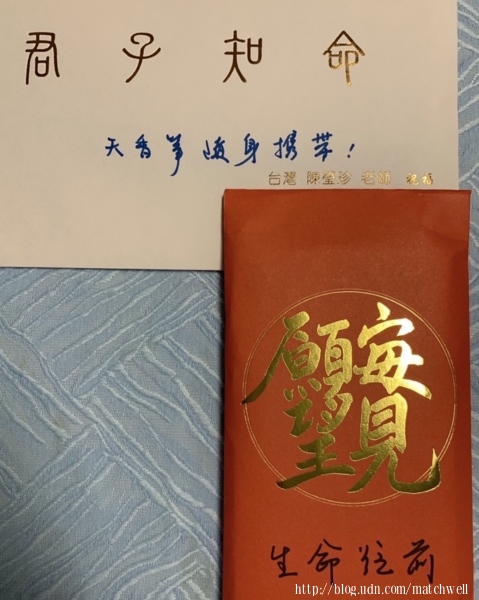 君子知命
天香筆隨身携帶！
台灣 陳瑩珍 老師 祝福
願望實現
生命往前
http://blog.udn.com/matchwell